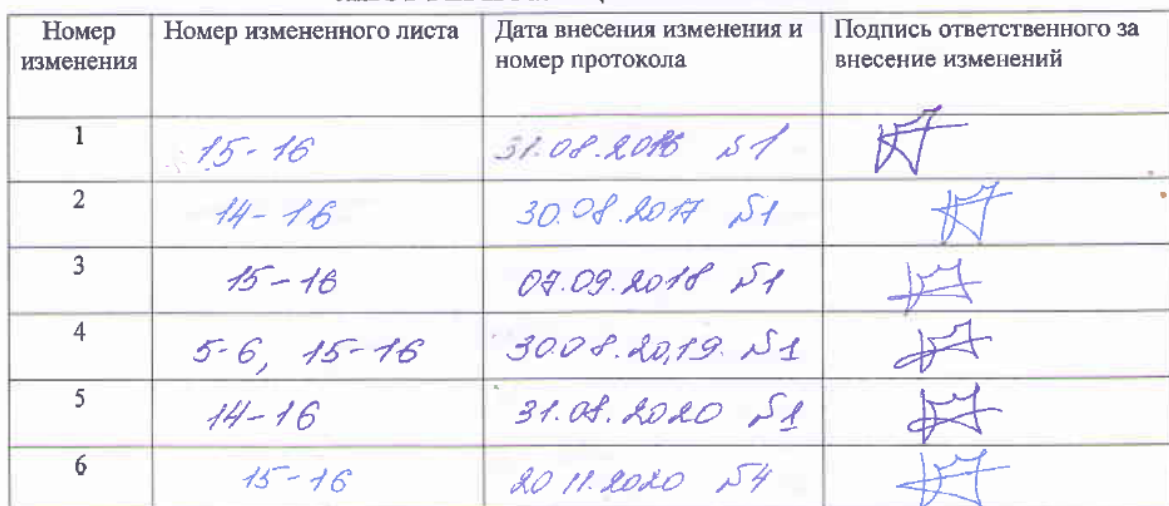 Номер изменения Номер измененного листа Дата внесения изменения и номер протокола Подпись ответственного за внесение изменений
1 15-16 31.08.2016 №1
2 14-16 30.08.2017 №1
3 15-16 07.09.2018 №1
4 5-6, 15-16 30.08.2019. №1
5 14-16 31.08.2020 №1
6 15-16 20.11.2020 №4